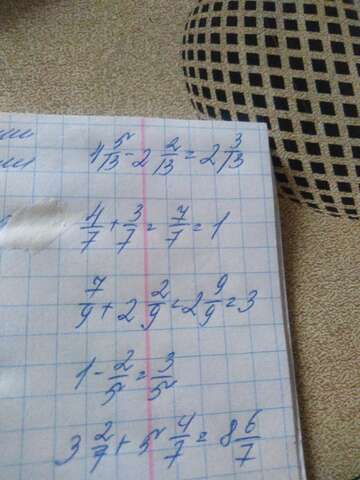 4 5/13 - 2 2/13 = 2 3/13
4/7 + 3/7 = 7/7 = 1
7/9 + 2 2/9 = 2 9/9 = 3
1 - 2/5 = 3/5
3 2/7 + 5 4/7 = 8 6/7